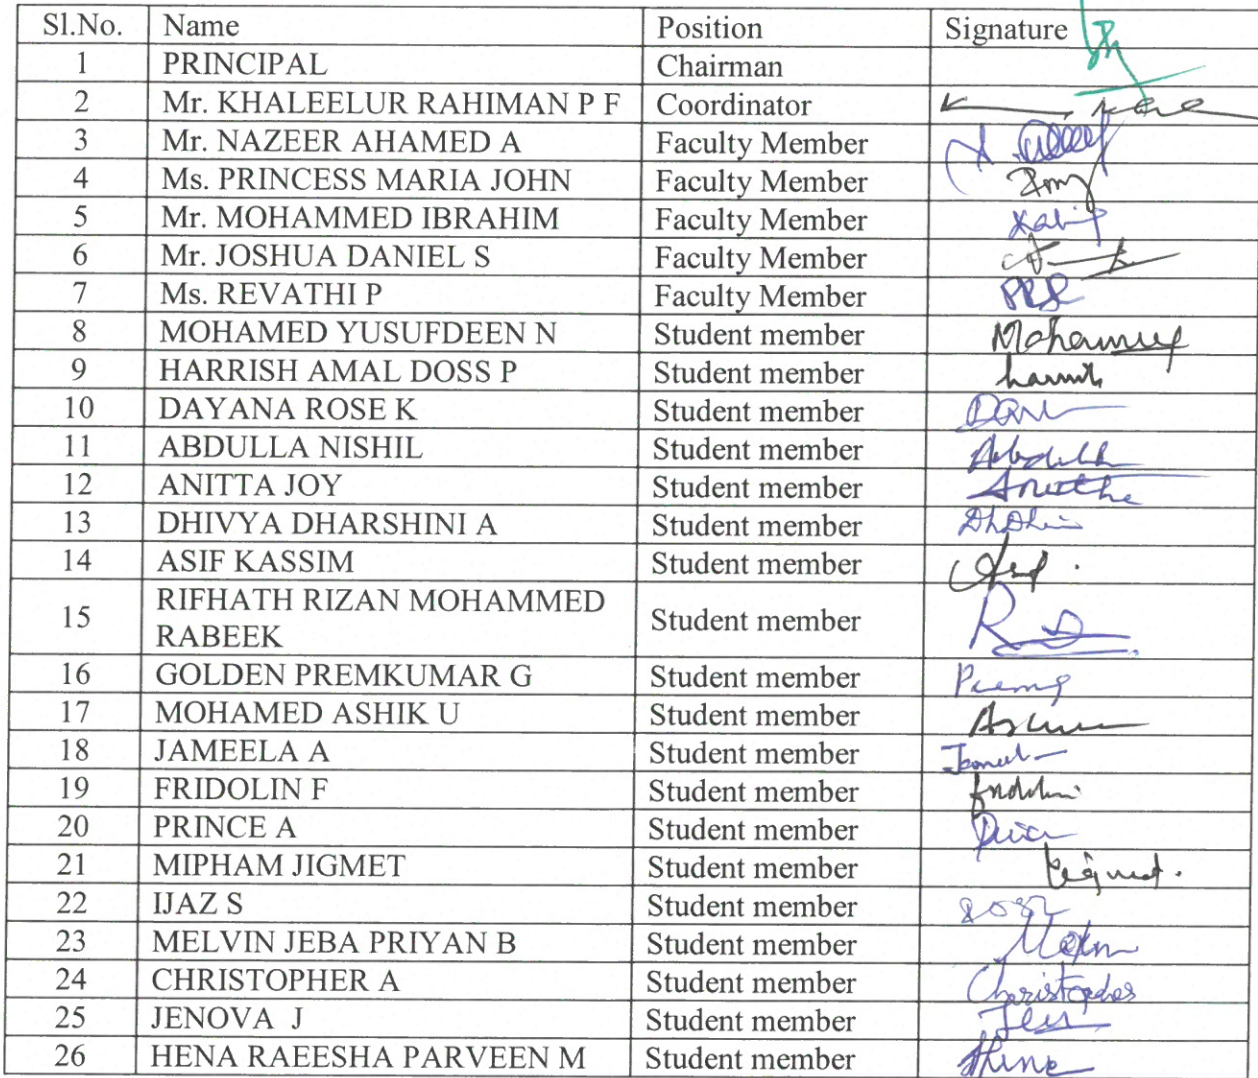 Sl.No. Name Position Signature
1 PRINCIPAL Chairman
2 Mr. KHALEELUR RAHIMAN P F Coordinator
3 Mr. NAZEER AHAMED A Faculty Member
4 Ms. PRINCESS MARIA JOHN Faculty Member
5 Mr. MOHAMMED IBRAHIM Faculty Member
6 Mr. JOSHUA DANIEL S Faculty Member
7 Ms. REVATHI P Faculty Member
8 MOHAMED YUSUFDEEN N Student member
9 HARRISH AMAL DOSS P Student member
10 DAYANA ROSE K Student member
11 ABDULLA NISHIL Student member
12 ANITTA JOY Student member
13 DHIVYA DHARSHINI A Student member
14 ASIF KASSIM Student member
15 RIFHATH RIZAN MOHAMMED
RABEEK Student member
16 GOLDEN PREMKUMAR G Student member
17 MOHAMED ASHIK U Student member
18 JAMEELA A Student member
19 FRIDOLIN F Student member
20 PRINCE A Student member
21 MIPHAM JIGMET Student member
22 IJAZ S Student member
23 MELVIN JEBA PRIYAN B Student member
24 CHRISTOPHER A Student member Christopher
25 JENOVA J Student member
26 HENA RAEESHA PARVEEN M Student member